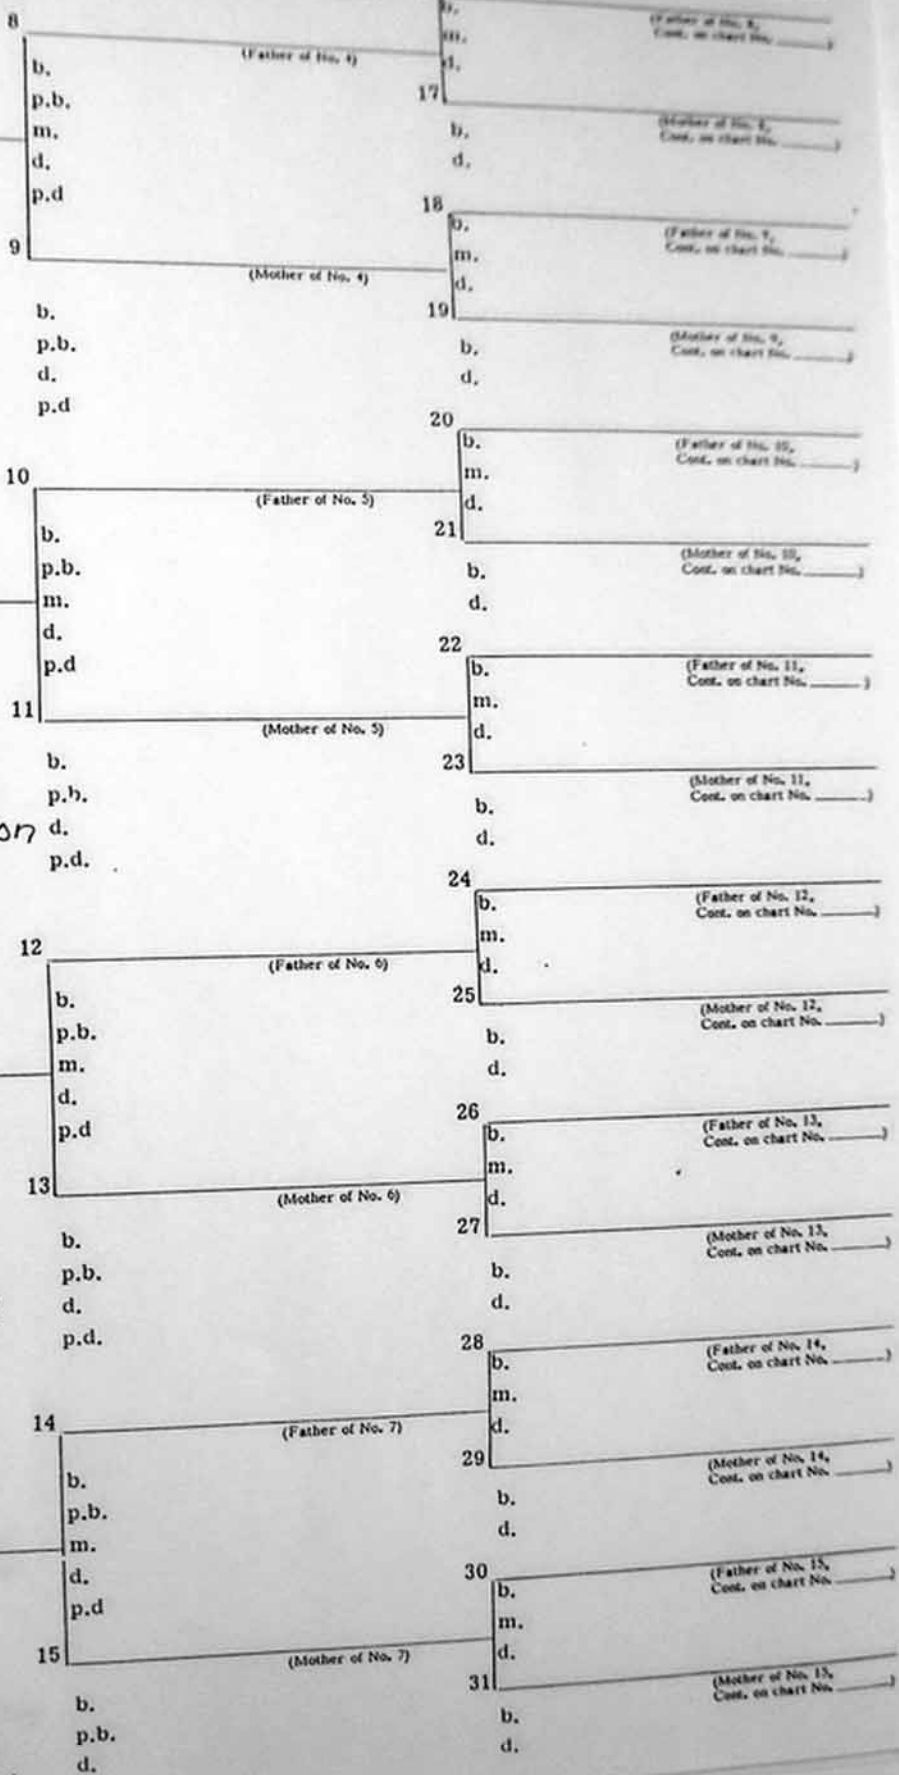 8
(Father of No. 4)
b.
p.b.
m.
d.
p.d
9
(Mother of No. 4)
b.
p.b.
d.
p.d
10
(Father of No. 5)
b.
p.b.
m.
d.
p.d
11
(Mother of No. 5)
b.
p.b.
on d.
p.d.
12
(Father of No. 6)
b.
p.b.
m.
d.
p.d
13
(Mother of No. 6)
b.
p.b.
d.
p.d.
14
(Father of No. 7)
b.
p.b.
m.
d.
p.d
15
(Mother of No. 7)
b.
p.b.
d.
b.
(Father of No. 8,
m.
Cont. on chart No. ______)
d.
17
(Mother of No. 8,
Cont. on chart No. ______)
b.
d.
18
b.
(Father of No. 9,
Cont. on chart No. ______)
m.
d.
19
(Mother of No. 9,
Cont. on chart No. ______)
b.
d.
20
b.
(Father of No. 10,
Cont. on chart No. ______)
m.
d.
21
(Mother of No. 10,
Cont. on chart No. ______)
b.
d.
22
b.
(Father of No. 11,
Cont. on chart No. ______)
m.
d.
23
(Mother of No. 11,
Cont. on chart No. ______)
b.
d.
24
b.
(Father of No. 12,
Cont. on chart No. ______)
m.
d.
25
(Mother of No. 12,
Cont. on chart No. ______)
b.
d.
26
b.
(Father of No. 13,
Cont. on chart No. ______)
m.
d.
27
(Mother of No. 13,
Cont. on chart No. ______)
b.
d.
28
b.
(Father of No. 14,
Cont. on chart No. ______)
m.
d.
29
(Mother of No. 14,
Cont. on chart No. ______)
b.
d.
30
b.
(Father of No. 15,
Cont. on chart No. ______)
m.
d.
31
(Mother of No. 15,
Cont. on chart No. ______)
b.
d.